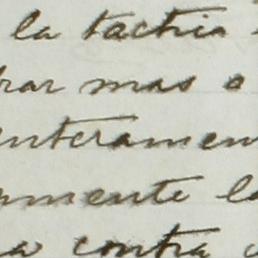 la tactica
rar mas o
nteramen
mente la
a contra